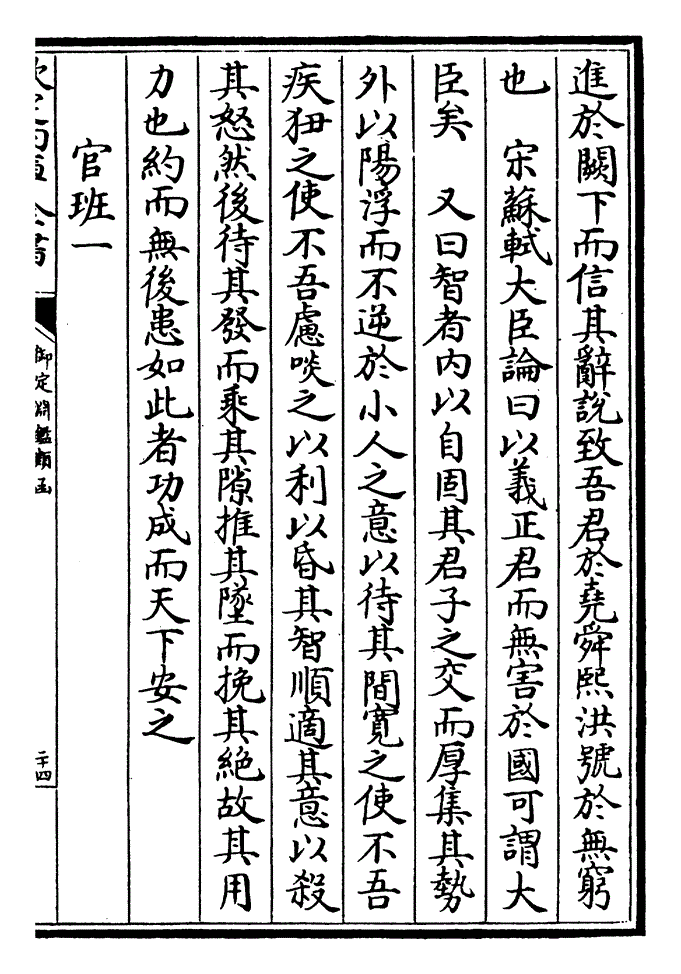 進於闕下而信其辭說致吾君於堯舜熙洪號於無窮
也　宋蘇軾大臣論曰以義正君而無害於國可謂大
臣矣　又曰智者內以自固其君子之交而厚集其勢
外以陽浮而不逆於小人之意以待其間寬之使不吾
疾狃之使不吾慮啖之以利以昏其智順適其意以殺
其怒然後待其發而乘其隙推其墜而挽其絕故其用
力也約而無後患如此者功成而天下安之
官班一
欽定四庫全書
御定淵鑑類函
二十四